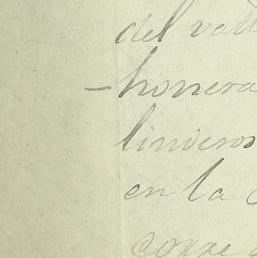 del vall
-honera
linderos
en la
corre